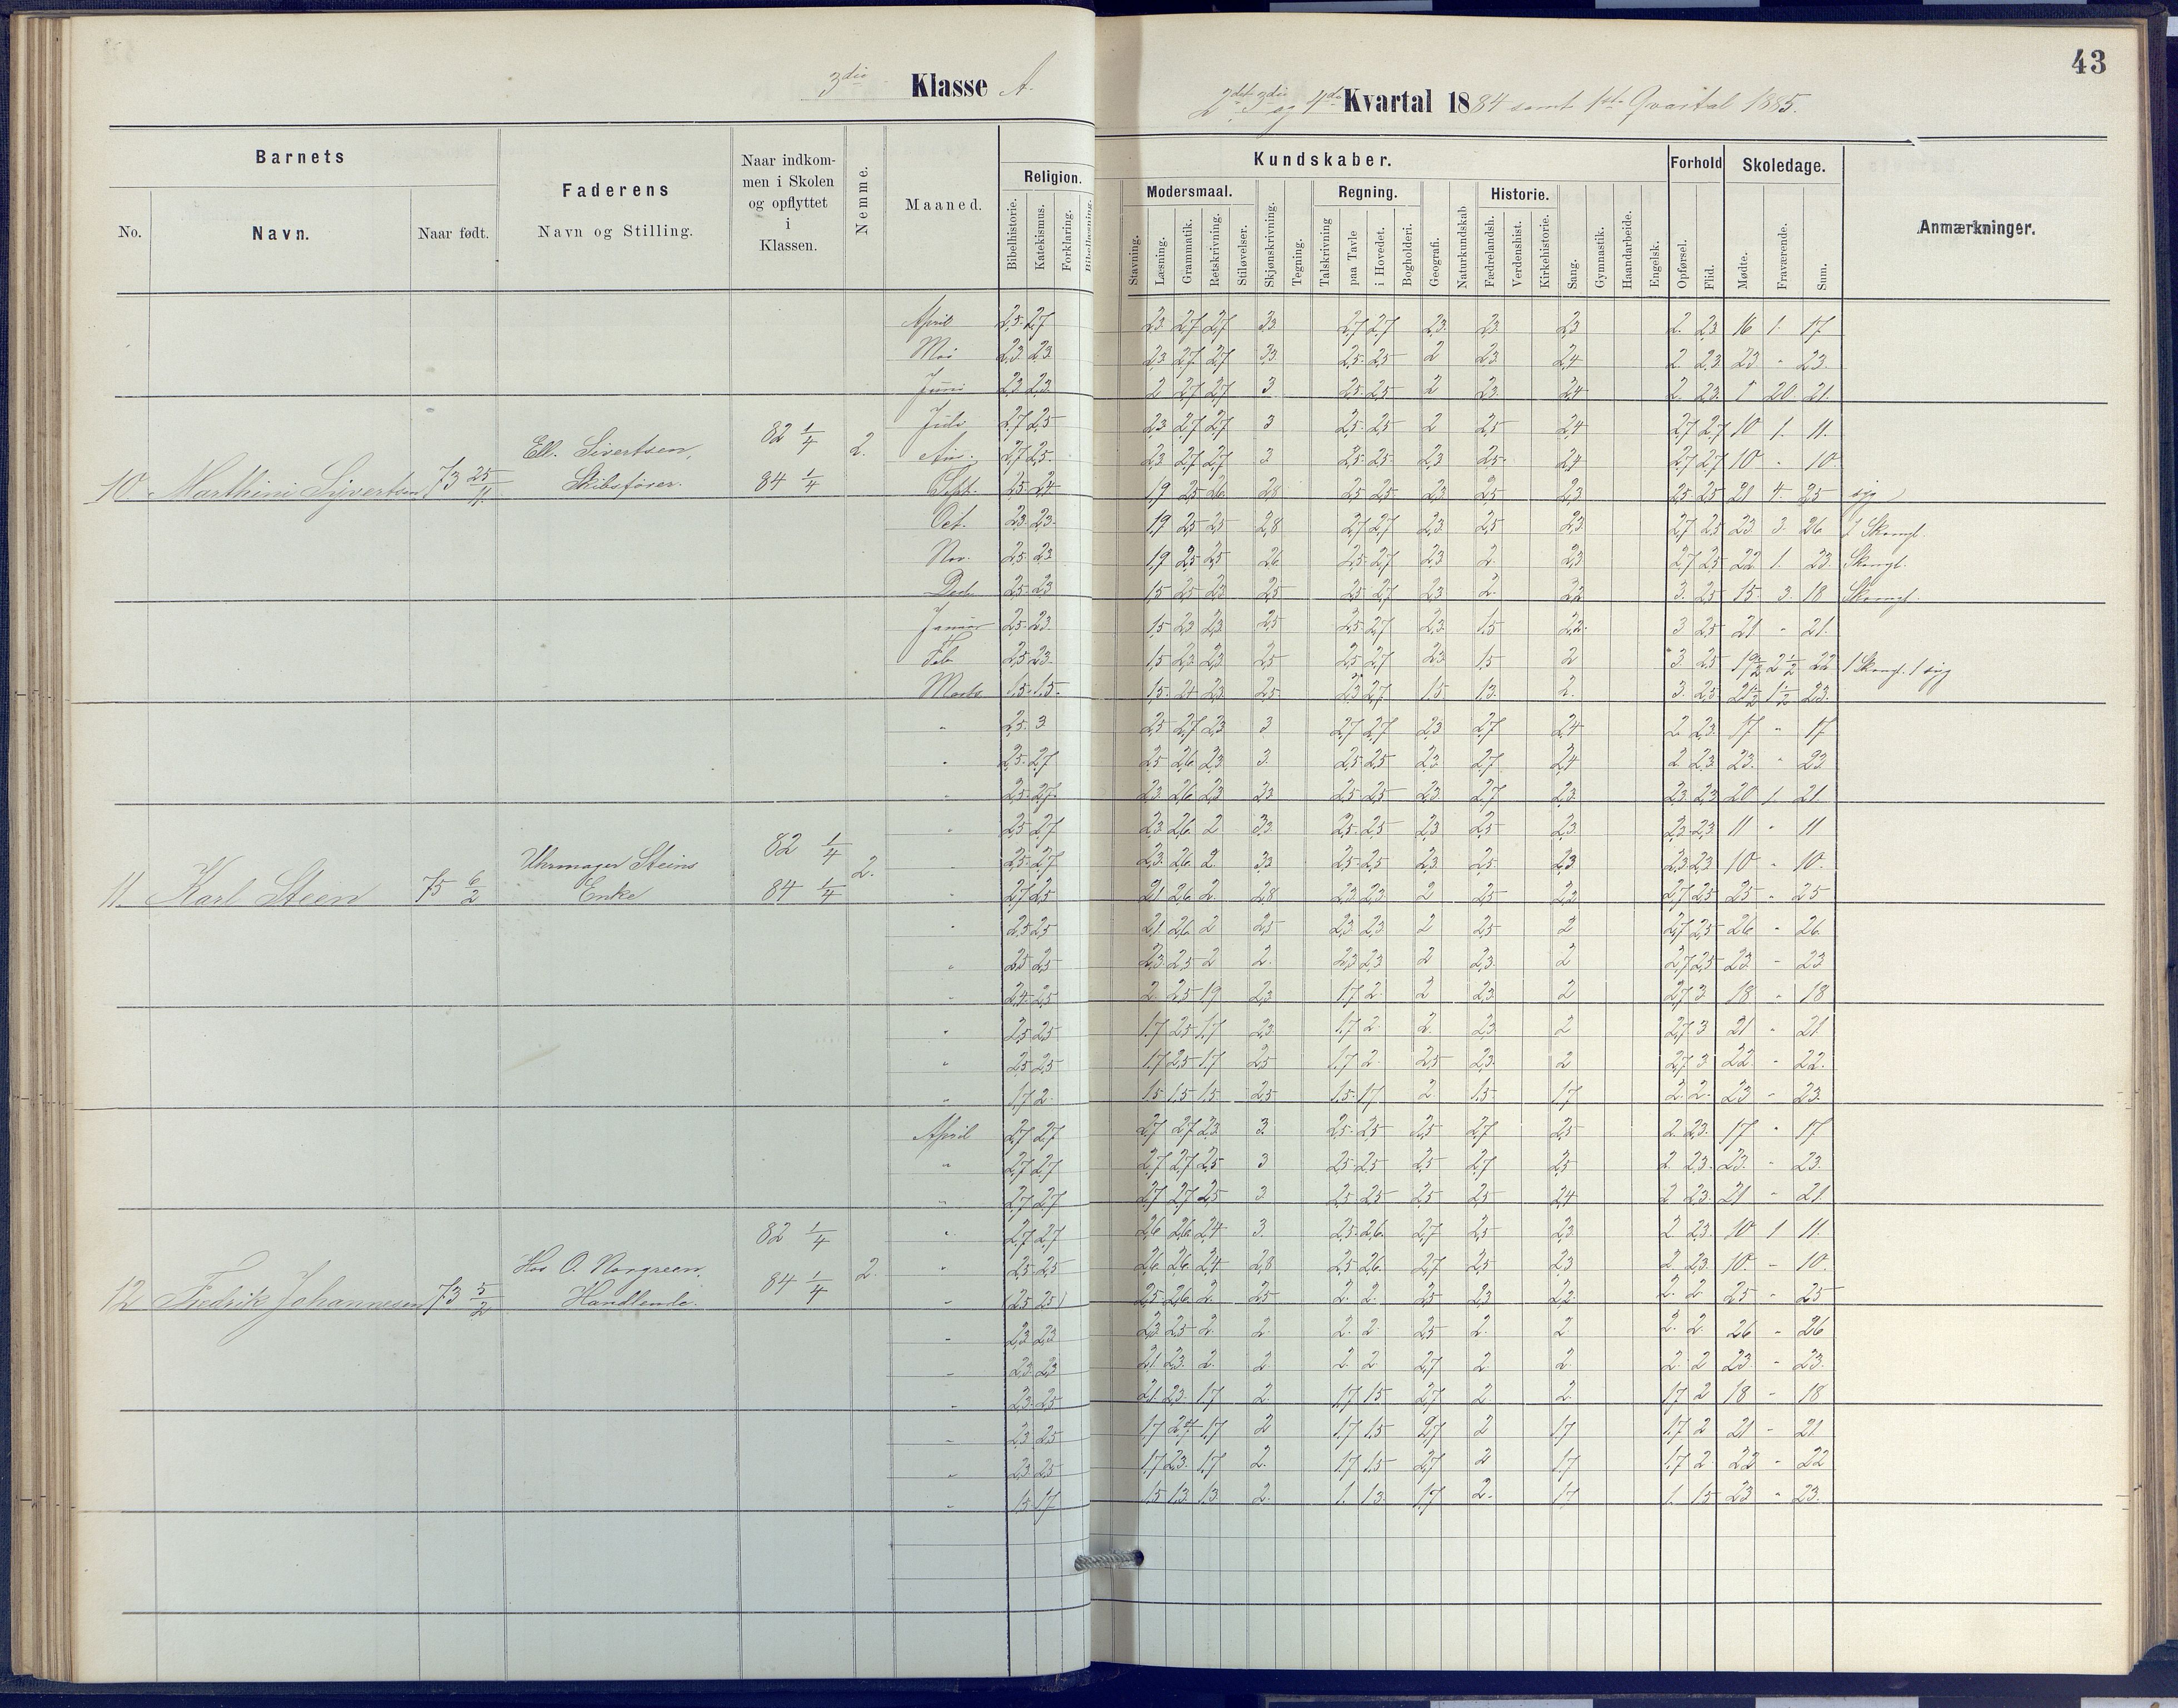 43
3die Klasse A.
2det 3die og 4de Kvartal 1884 samt 1ste Qvartal 1885.
Barnets
No.
Navn.
Naar født.
Faderens
Navn og Stilling.
Naar indkom-
men i Skolen
og opflyttet
i
Klassen.
Nemme.
Maaned.
Kundskaber.
Religion.
Bibelhistorie.
Katekismus.
Forklaring.
Bibellæsning.
Modersmaal.
Stavning.
Læsning.
Grammatik.
Retskrivning.
Stiløvelser.
Skjønskrivning.
Tegning.
Regning.
Talskrivning
paa Tavle
i Hovedet.
Bogholderi.
Geografi.
Naturkundskab
Historie.
Fædrelandsh.
Verdenshist.
Kirkehistorie.
Sang.
Gymnastik.
Haandarbeide.
Engelsk.
Forhold
Opførsel.
Flid.
Skoledage.
Mødte.
Fraværende.
Sum.
Anmærkninger.
10 Marthini Syvertsen 73 25/11 Ell. Sivertsen, Skibsfører. 82 1/4 84 1/4 2.
April 2,5 2,7 2,3 2,7 2,7 3,3 2,7 2,7 2,3 2,3 2,3 2. 2,3 16 1. 17
Mai 2,3 2,3 2,3 2,7 2,7 3,3 2,5 2,5 2 2,3 2,4 2. 2,3 23 " 23.
Juni 2,3 2,3 2 2,7 2,7 3 2,5 2,5 2 2,3 2,4 2. 2,3 1 20 21.
Juli 2,7 2,5 2,3 2,7 2,7 3 2,5 2,5 2 2,5 2,4 2,7 2,7 10 1. 11.
Aug. 2,7 2,5 2,3 2,7 2,7 3 2,5 2,5 2,3 2,5 2,4 2,7 2,7 10 " 10
Sept. 2,5 2,4 1,9 2,5 2,6 2,8 2,5 2,5 2,3 2,5 2,3 2,5 2,5 21 4. 25 syg
Oct. 2,3 2,3 1,9 2,5 2,5 2,8 2,7 2,7 2,3 2,5 2,3 2,7 2,5 23 3. 26 Skomgl.
Nov. 2,5 2,3 1,9 2,5 2,5 2,6 2,5 2,7 2,3 2. 2,3 2,7 2,5 22 1. 23 Skomgl.
Decb 2,5 2,3 1,5 2,5 2,3 2,5 2,5 2,7 2,3 2. 2,2 3. 2,5 15 3. 18 Skomgl.
Januar 2,5 2,3 1,5 2,3 2,3 2,5 2,5 2,7 2,3 1,5 2,2 3 2,5 21 " 21.
Feb 2,5 2,3 1,5 2,3 2,3 2,5 2,5 2,7 2,3 1,5 2 3. 2,5 19 1/2 2 1/2 22 1 Skomgl. 1 syg
Marts 1,5 1,5 1,5 2,4 2,3 2,5 2,3 2,7 1,5 1,3 2. 3. 2,5 21 1/2 1 1/2 23.
11. Karl Steen 75 6/2 Uhrmager Steins Enke 82 1/4 84 1/4 2.
" 2,5 3 2,5 2,7 2,3 3 2,7 2,7 2,3 2,7 2,4 2 2,3 17 " 17
" 2,5 2,7 2,5 2,6 2,3 3. 2,5 2,5 2,3 2,7 2,4 2 2,3 23. " 23
" 2,5 2,7 2,3 2,6 2,3 3,3 2,5 2,5 2,3 2,7 2,3 2,3 2,3 20 1 21
" 2,5 2,7 2,3 2,6 2 3,3 2,5 2,5 2,3 2,5 2,3 2,3 2,3 11 " 11
" 2,5 2,7 2,3 2,6 2 3,3 2,5 2,5 2,3 2,5 2,3 2,3 2,3 10 " 10.
" 2,7 2,5 2,1 2,6 2. 2,8 2,3 2,3 2 2,5 2,2 2,7 2,5 25 " 25
" 2,5 2,5 2,1 2,6 2 2,5 2,3 2,3 2 2,5 2 2,7 2,5 26 " 26
" 2,5 2,5 2,3 2,5 2 2. 2,3 2,3 2 2,3 2 2,7 2,5 23 " 23
" 2,4 2,5 2 2,5 1,9 2,3 1,7 2 2 2,3 2 2,7 3 18 " 18
" 2,5 2,5 1,7 2,5 1,7 2,3 1,7 2 2 2,3 2 2,7 3 21 " 21
" 2,5 2,5 1,7 2,5 1,7 2,5 1,7 2 2,5 2,3 2 2,7 3 22 " 22.
" 1,7 2 1,5 1,5 1,5 2,5 1,5 1,7 2 1,5 1,7 2. 2. 23 " 23.
12 Fredrik Johannesen 73 5/2 Hos O. Norgreen, Handlende. 82 1/4 84 1/4 2.
April 2,7 2,7 2,7 2,7 2,3 3. 2,5 2,5 2,5 2,7 2,5 2. 2,3 17 " 17
" 2,7 2,7 2,7 2,7 2,5 3 2,5 2,5 2,5 2,7 2,5 2 2,3 23. " 23.
" 2,7 2,7 2,7 2,7 2,5 3 2,5 2,5 2,5 2,5 2,4 2 2,3 21 " 21
" 2,7 2,7 2,6 2,6 2,4 3. 2,5 2,6 2,7 2,5 2,3 2 2,3 10 1 11.
" 2,5 2,5 2,6 2,6 2,4 2,8 2,5 2,6 2,7 2,5 2,3 2 2,3 10 " 10.
" 2,5 2,5 2,5 2,6 2. 2,5 2. 2. 2,5 2,3 2,2 2. 2. 25 " 25
" 2,3 2,3 2,3 2,5 2. 2. 2. 2. 2,5 2. 2 2. 2. 26 " 26
" 2,3 2,3 2,1 2,3 2. 2. 2. 2 2,7 2. 2. 2. 2 23 " 23.
" 2,3 2,5 2,1 2,3 1,7 2. 1,7 1,5 2,7 2. 2. 1,7 2 18 " 18
" 2,3 2,5 1,7 2,4 1,7 2 1,7 1,5 2,7 2 1,7 1,7 2 21 " 21
" 2,3 2,5 1,7 2,3 1,7 2. 1,7 1,5 2,7 2 1,7 1,7 2 22 " 22
" 1,5 1,7 1,5 1,3 1,3 2. 1. 1,3 1,7 2. 1,7 1. 1,5 23 " 23.